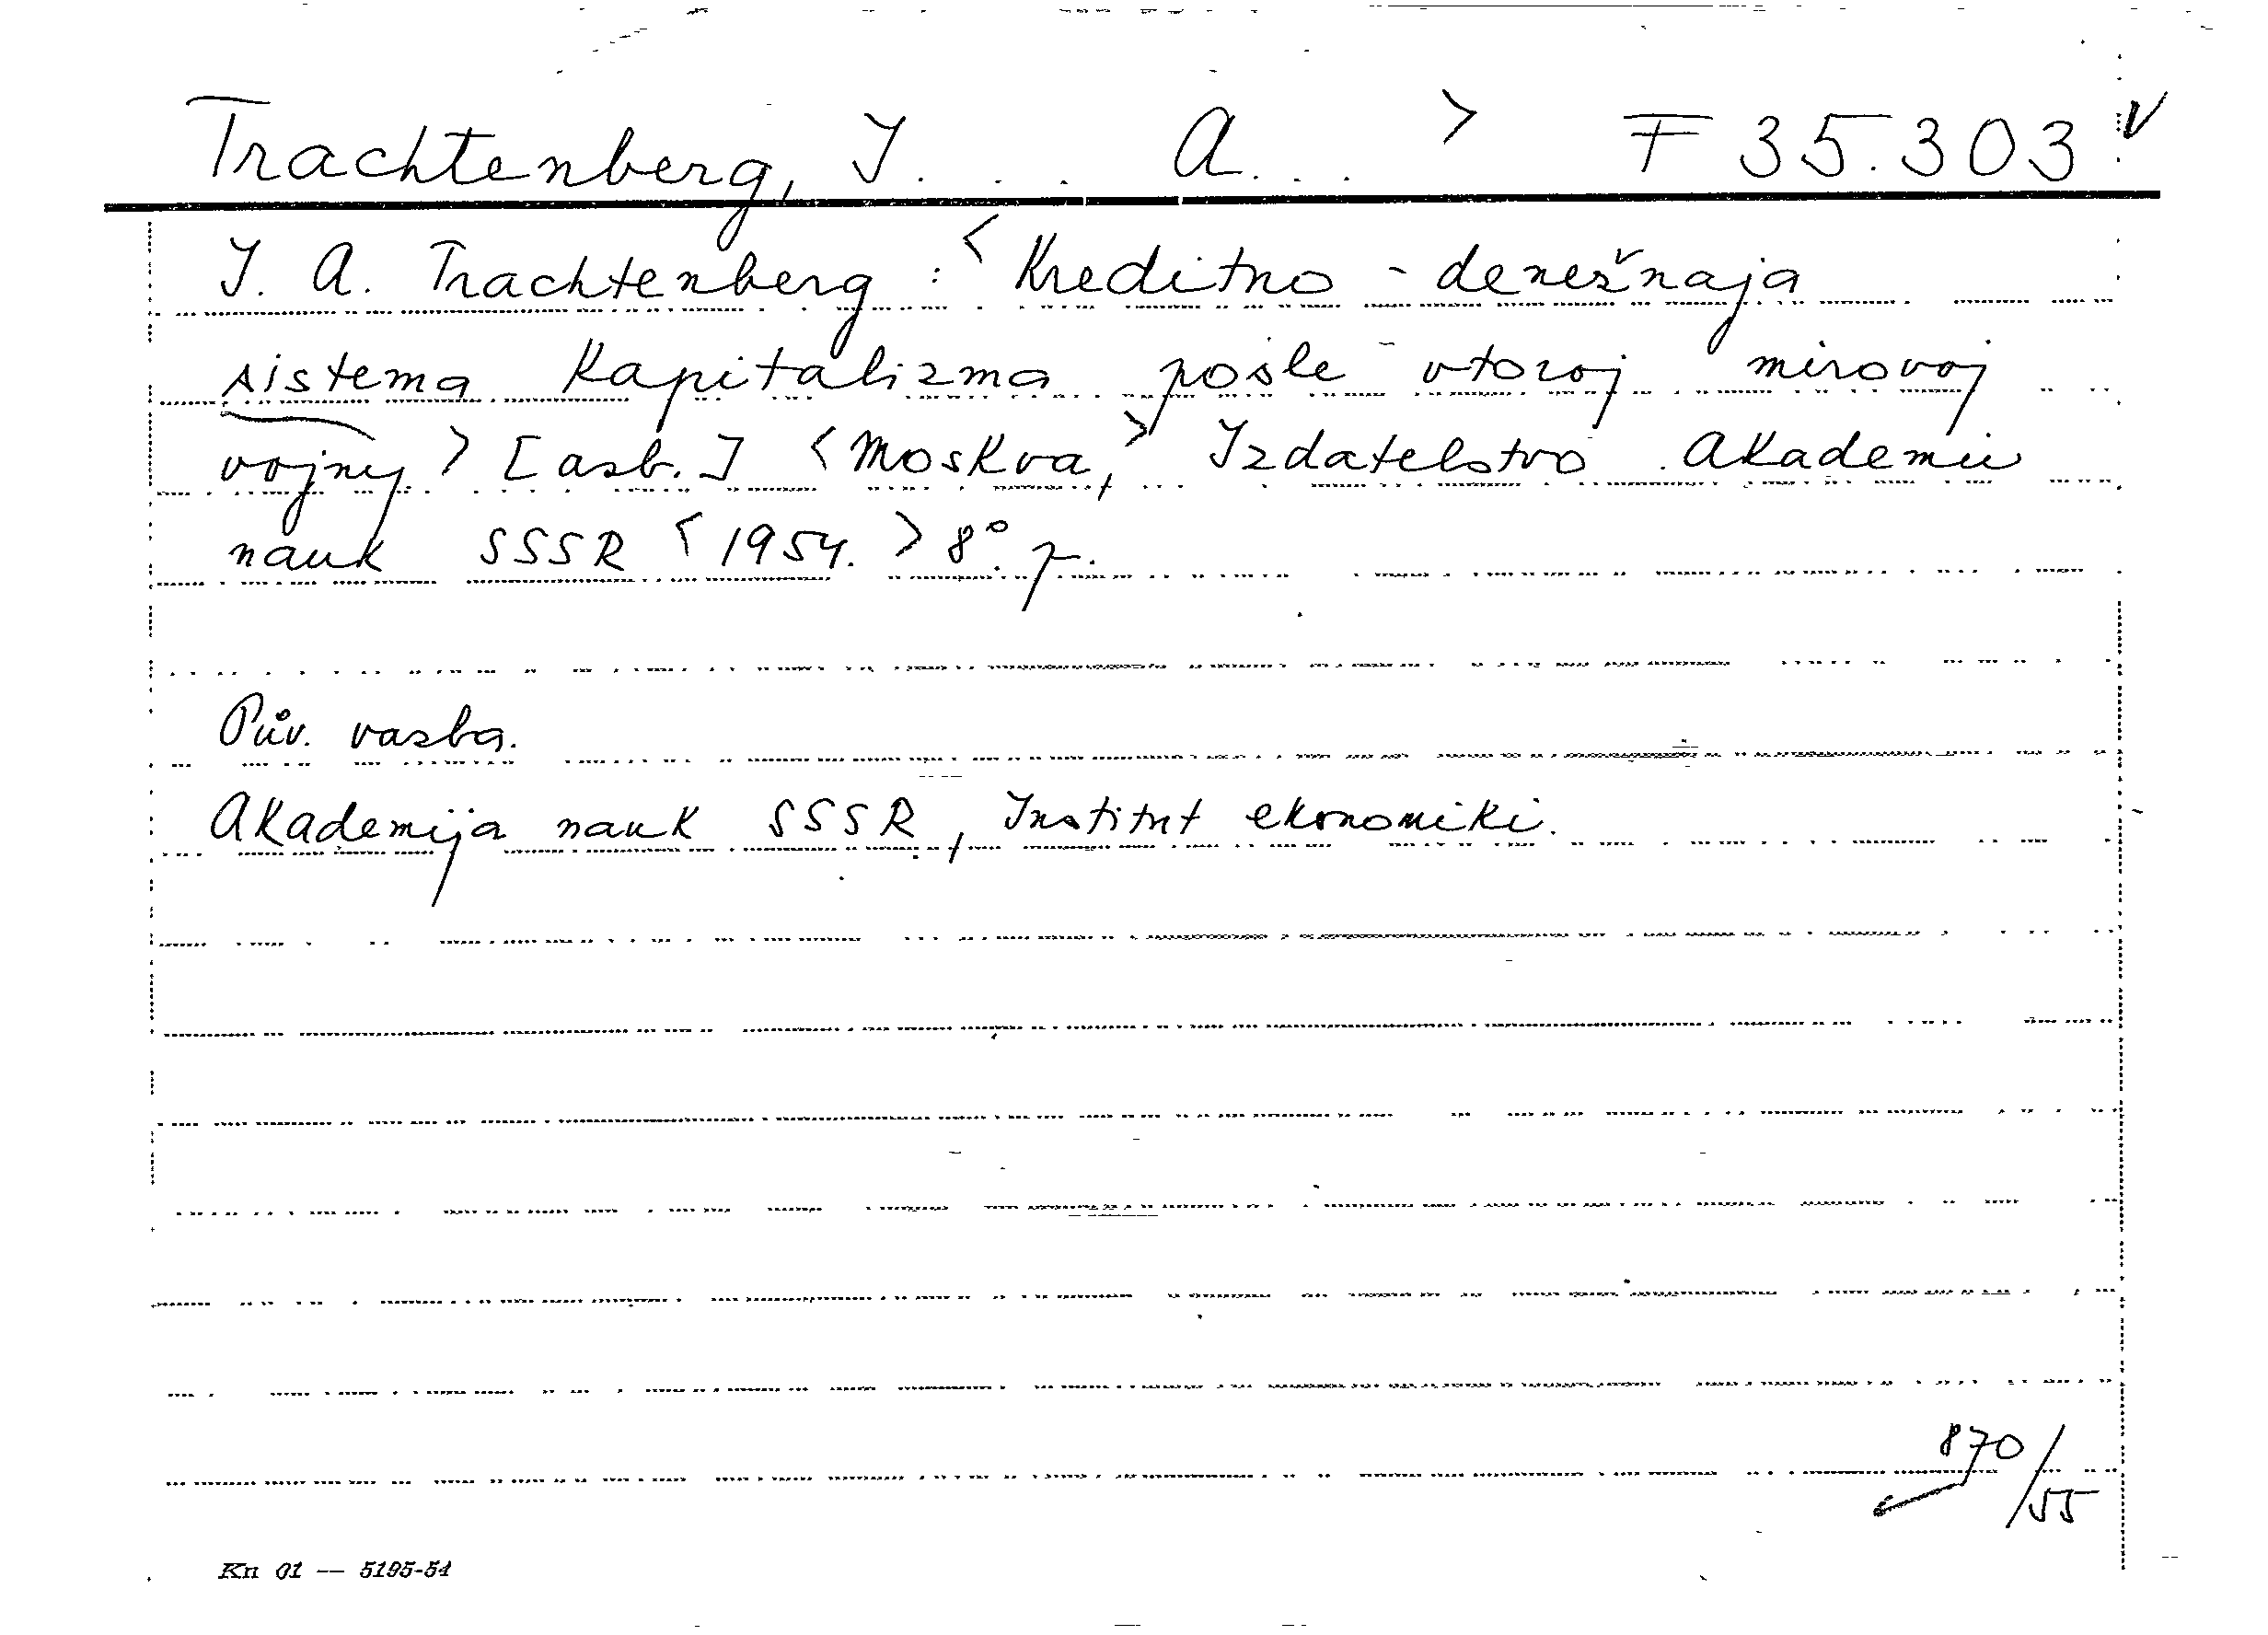 Trachtenberg, I... A... > F 35.303 v
I. A. Trachtenberg: < Kreditno-denežnaja
sistema kapitalizma posle vtoroj mirovoj
vojny > [azb.] < Moskva, > Izdatelstvo Akademii
nauk SSSR < 1954. > 8°. p.
Pův. vazba.
Akademija nauk SSSR, Institut ekonomiki.
870/55
Kn 01 — 5195-54